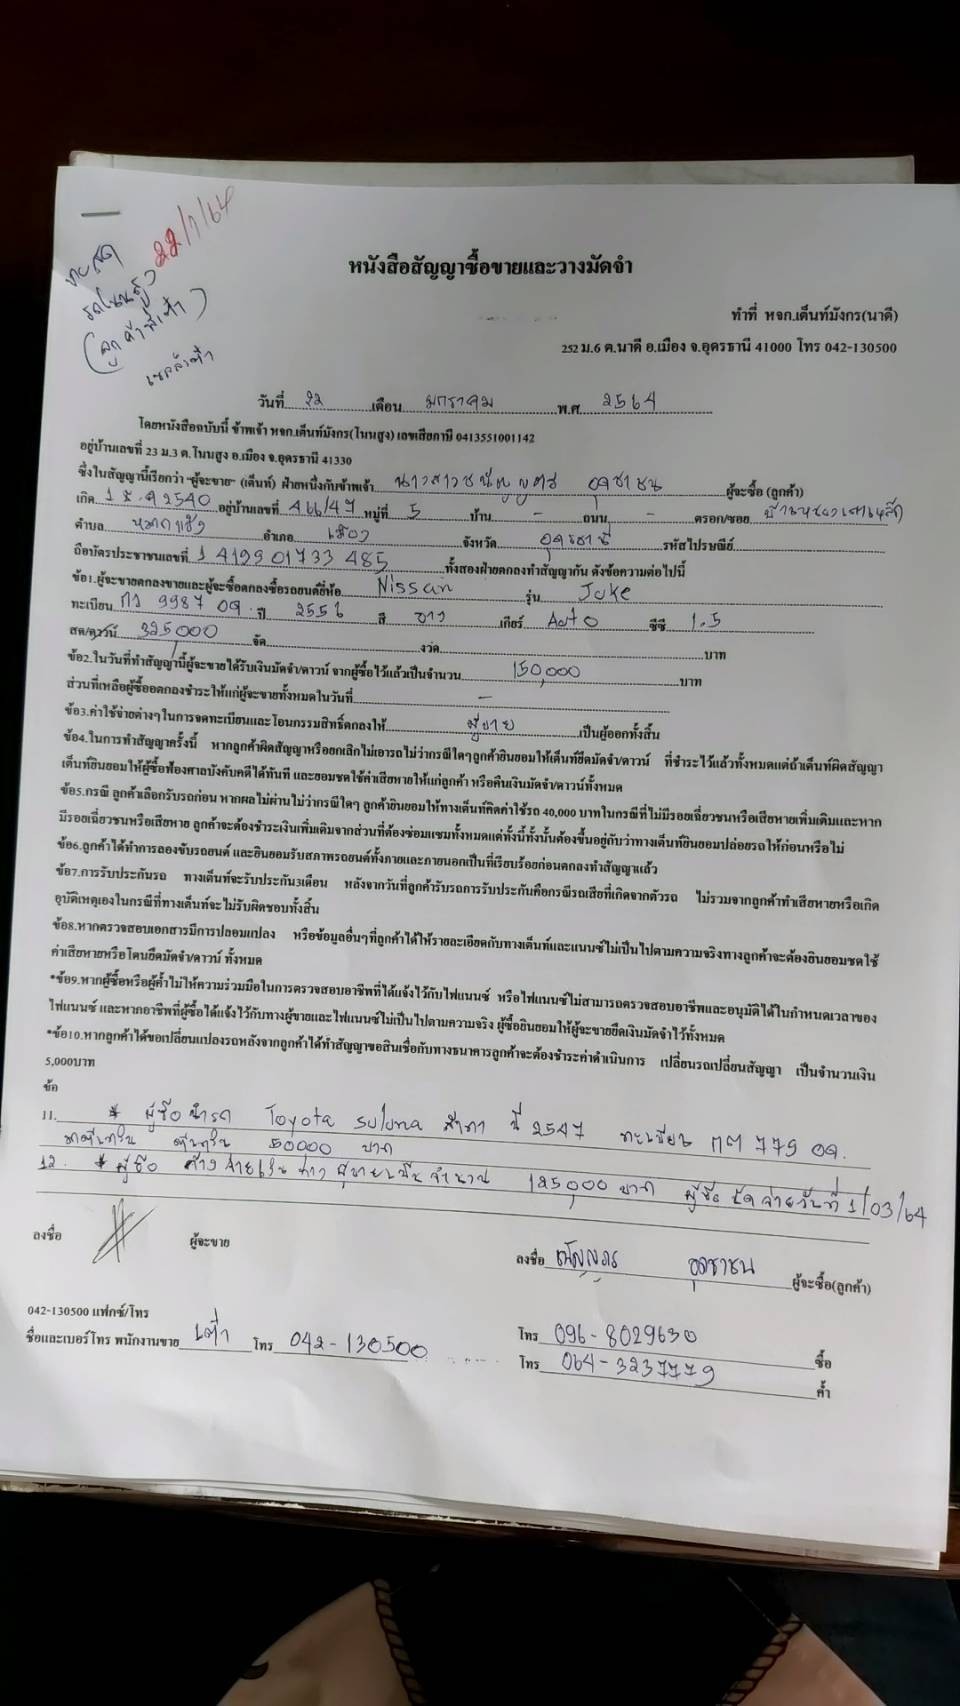 ขายสด
22/1/64
รถโนนสูง
(ลูกค้าพี่เต่า)
เซลล์เต่า
หนังสือสัญญาซื้อขายและวางมัดจำ
ทำที่ หจก.เต็นท์มังกร(นาดี)
252 ม.6 ต.นาดี อ.เมือง จ.อุดรธานี 41000 โทร 042-130500
วันที่ 22 เดือน มกราคม พ.ศ. 2564
โดยหนังสือฉบับนี้ ข้าพเจ้า หจก.เต็นท์มังกร(โนนสูง) เลขเสียภาษี 0413551001142
อยู่บ้านเลขที่ 23 ม.3 ต.โนนสูง อ.เมือง จ.อุดรธานี 41330
ซึ่งในสัญญานี้เรียกว่า "ผู้จะขาย" (เต็นท์) ฝ่ายหนึ่งกับข้าพเจ้า นางสาว ผู้จะซื้อ (ลูกค้า)
เกิด 2540 อยู่บ้านเลขที่ 466/47 หมู่ที่ 5 บ้าน - ถนน - ตรอก/ซอย
ตำบล หมากแข้ง อำเภอ เมือง จังหวัด อุดรธานี รหัสไปรษณีย์
ถือบัตรประชาชนเลขที่ 1 4199 01733 485 ทั้งสองฝ่ายตกลงทำสัญญากัน ดังข้อความต่อไปนี้
ข้อ1.ผู้จะขายตกลงขายและผู้จะซื้อตกลงซื้อรถยนต์ยี่ห้อ Nissan รุ่น Juke
ทะเบียน กว 9987 อด. ปี 2556 สี ขาว เกียร์ Auto ซีซี 1.5
สด/ดาวน์ 325,000 จัด งวด บาท
ข้อ2.ในวันที่ทำสัญญานี้ผู้จะขายได้รับเงินมัดจำ/ดาวน์ จากผู้ซื้อไว้แล้วเป็นจำนวน 150,000 บาท
ส่วนที่เหลือผู้ซื้อออกลงชำระให้แก่ผู้จะขายทั้งหมดในวันที่ -
ข้อ3.ค่าใช้จ่ายต่างๆในการจดทะเบียนและโอนกรรมสิทธิ์ตกลงให้ ผู้ขาย เป็นผู้ออกทั้งสิ้น
ข้อ4.ในการทำสัญญาครั้งนี้ หากลูกค้าผิดสัญญาหรือยกเลิกไม่เอารถไม่ว่ากรณีใดๆลูกค้ายินยอมให้เต็นท์ยึดมัดจำ/ดาวน์ ที่ชำระไว้แล้วทั้งหมดแต่ถ้าเต็นท์ผิดสัญญา
เต็นท์ยินยอมให้ผู้ซื้อฟ้องศาลบังคับคดีได้ทันที และยอมชดใช้ค่าเสียหายให้แก่ลูกค้า หรือคืนเงินมัดจำ/ดาวน์ทั้งหมด
ข้อ5.กรณี ลูกค้าเลือกรับรถก่อน หากผลไม่ผ่านไม่ว่ากรณีใดๆ ลูกค้ายินยอมให้ทางเต็นท์คิดค่าใช้รถ 40,000 บาทในกรณีที่ไม่มีรอยเฉี่ยวชนหรือเสียหายเพิ่มเติมและหาก
มีรอยเฉี่ยวชนหรือเสียหาย ลูกค้าจะต้องชำระเงินเพิ่มเติมจากส่วนที่ต้องซ่อมแซมทั้งหมดแต่ทั้งนี้ทั้งนั้นต้องขึ้นอยู่กับว่าทางเต็นท์ยินยอมปล่อยรถให้ก่อนหรือไม่
ข้อ6.ลูกค้าได้ทำการลองขับรถยนต์ และยินยอมรับสภาพรถยนต์ทั้งภายและภายนอกเป็นที่เรียบร้อยก่อนตกลงทำสัญญาแล้ว
ข้อ7.การรับประกันรถ ทางเต็นท์จะรับประกัน3เดือน หลังจากวันที่ลูกค้ารับรถการรับประกันคือกรณีรถเสียที่เกิดจากตัวรถ ไม่รวมจากลูกค้าทำเสียหายหรือเกิด
อุบัติเหตุเองในกรณีที่ทางเต็นท์จะไม่รับผิดชอบทั้งสิ้น
ข้อ8.หากตรวจสอบเอกสารมีการปลอมแปลง หรือข้อมูลอื่นๆที่ลูกค้าได้ให้รายละเอียดกับทางเต็นท์และแนนซ์ไม่เป็นไปตามความจริงทางลูกค้าจะต้องยินยอมชดใช้
ค่าเสียหายหรือโดนยึดมัดจำ/ดาวน์ ทั้งหมด
*ข้อ9.หากผู้ซื้อหรือผู้ค้ำไม่ให้ความร่วมมือในการตรวจสอบอาชีพที่ได้แจ้งไว้กับไฟแนนซ์ หรือไฟแนนซ์ไม่สามารถตรวจสอบอาชีพและอนุมัติได้ในกำหนดเวลาของ
ไฟแนนซ์ และหากอาชีพที่ผู้ซื้อได้แจ้งไว้กับทางผู้ขายและไฟแนนซ์ไม่เป็นไปตามความจริง ผู้ซื้อยินยอมให้ผู้จะขายยึดเงินมัดจำไว้ทั้งหมด
*ข้อ10.หากลูกค้าได้ขอเปลี่ยนแปลงรถหลังจากลูกค้าได้ทำสัญญาขอสินเชื่อกับทางธนาคารลูกค้าจะต้องชำระค่าดำเนินการ เปลี่ยนรถเปลี่ยนสัญญา เป็นจำนวนเงิน
5,000บาท
ข้อ
11. * ผู้ซื้อนำรถ Toyota soluna สีเทา ปี 2547 ทะเบียน กต 779 อด.
มาตีเทิร์น ตีเทิร์น 50000 บาท
12. * ผู้ซื้อ ค้างจ่ายเงินทางผู้ขายเป็นจำนวน 125,000 บาท ผู้ซื้อนัดจ่ายวันที่ 1/03/64
ลงชื่อ ผู้จะขาย
ลงชื่อ ผู้จะซื้อ(ลูกค้า)
042-130500 แฟกซ์/โทร
ชื่อและเบอร์โทร พนักงานขาย เต่า โทร 042-130500
โทร 096-8029630 ซื้อ
โทร 064-3237779 ค้ำ